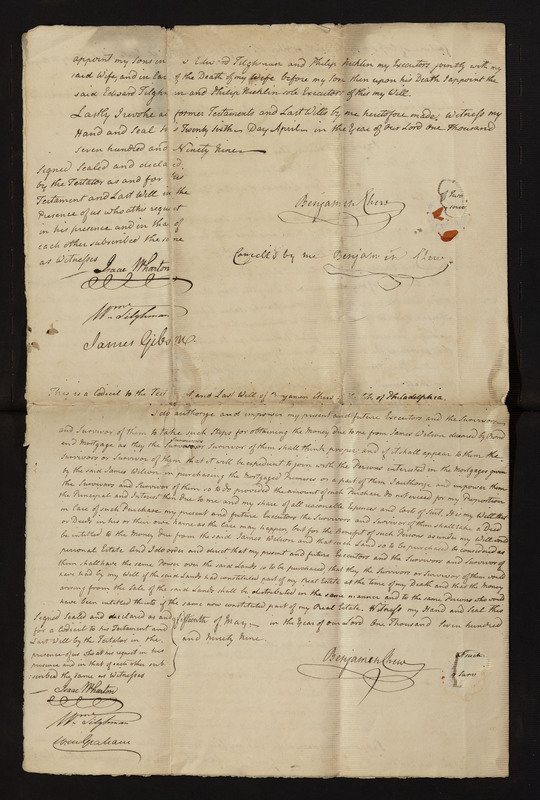 appoint my Sons in Edwd Tilghman and Philip Nicklin my Executors jointly with my
said Wife, and in Case of the Death of my Wife before my Son then upon his Death I appoint the
said Edward Tilghman and Philip Nicklin sole Executors of this my Will.
Lastly I revoke all former Testaments and Last Wills by me heretofore made. Witness my
Hand and Seal this Twenty Sixth Day April in the Year of our Lord One Thousand
seven hundred and Ninety Nine
Signed Sealed and declared
by the Testator as and for his
Testament and Last Will in the
Presence of us who at his request
in his presence and in that of
each other subscribed the same
as Witnesses
Benjamin Chew
Cancell'd by me Benjamin Chew
Isaac Wharton
Wm Tilghman
James Gibson
This is a Codicil to the Testament and Last Will of Benjamin Chew City of Philadelphia.
I do authorize and impower my present and future Executors and the Survivors
and Survivor of them to take such Steps for obtaining the Money due to me from James Wilson deceased by Bond
and Mortgage as they the Survivors or Survivor of them shall think proper; and if it shall appear to them the
Survivors or Survivor of them that it will be expedient to join with the Persons interested in the Mortgages given
by the said James Wilson in purchasing the Mortgaged Premises or a part of them I authorize and impower them
the Survivors and Survivor of them so to do provided the amount of such Purchase do not exceed for my Proportion
the Principal and Interest then due to me and my share of all reasonable Expences and Costs of Suit. It is my Will that
in Case of such Purchase my present and future Executors the Survivors and Survivor of them shall take a Deed
or Deeds in his or their own name as the Case may happen but for the Benefit of such Persons as under my Will would
be intitled to the Money due from the said James Wilson and that such Land so to be purchased be considered as
personal Estate And I do order and direct that my present and future Executors and the Survivors and Survivor of
them shall have the same Power over the said Lands so to be purchased that they the Survivors or Survivor of them would
have had by my Will if the said Lands had constituted part of my Real Estate at the time of my Death and that the Money
arising from the Sale of the said Lands shall be distributed in the same manner and to the same Persons who would
have been intitled thereto if the same now constituted part of my Real Estate. Witness my Hand and Seal this
fifteenth of May in the Year of our Lord One Thousand Seven hundred
and Ninety Nine.
Signed Sealed and declared as and
for a Codicil to his Testament and
Last Will by the Testator in the
presence of us who at his request in his
presence and in that of each other sub
scribed the same as Witnesses
Benjamin Chew
Isaac Wharton
Wm Tilghman
Graham